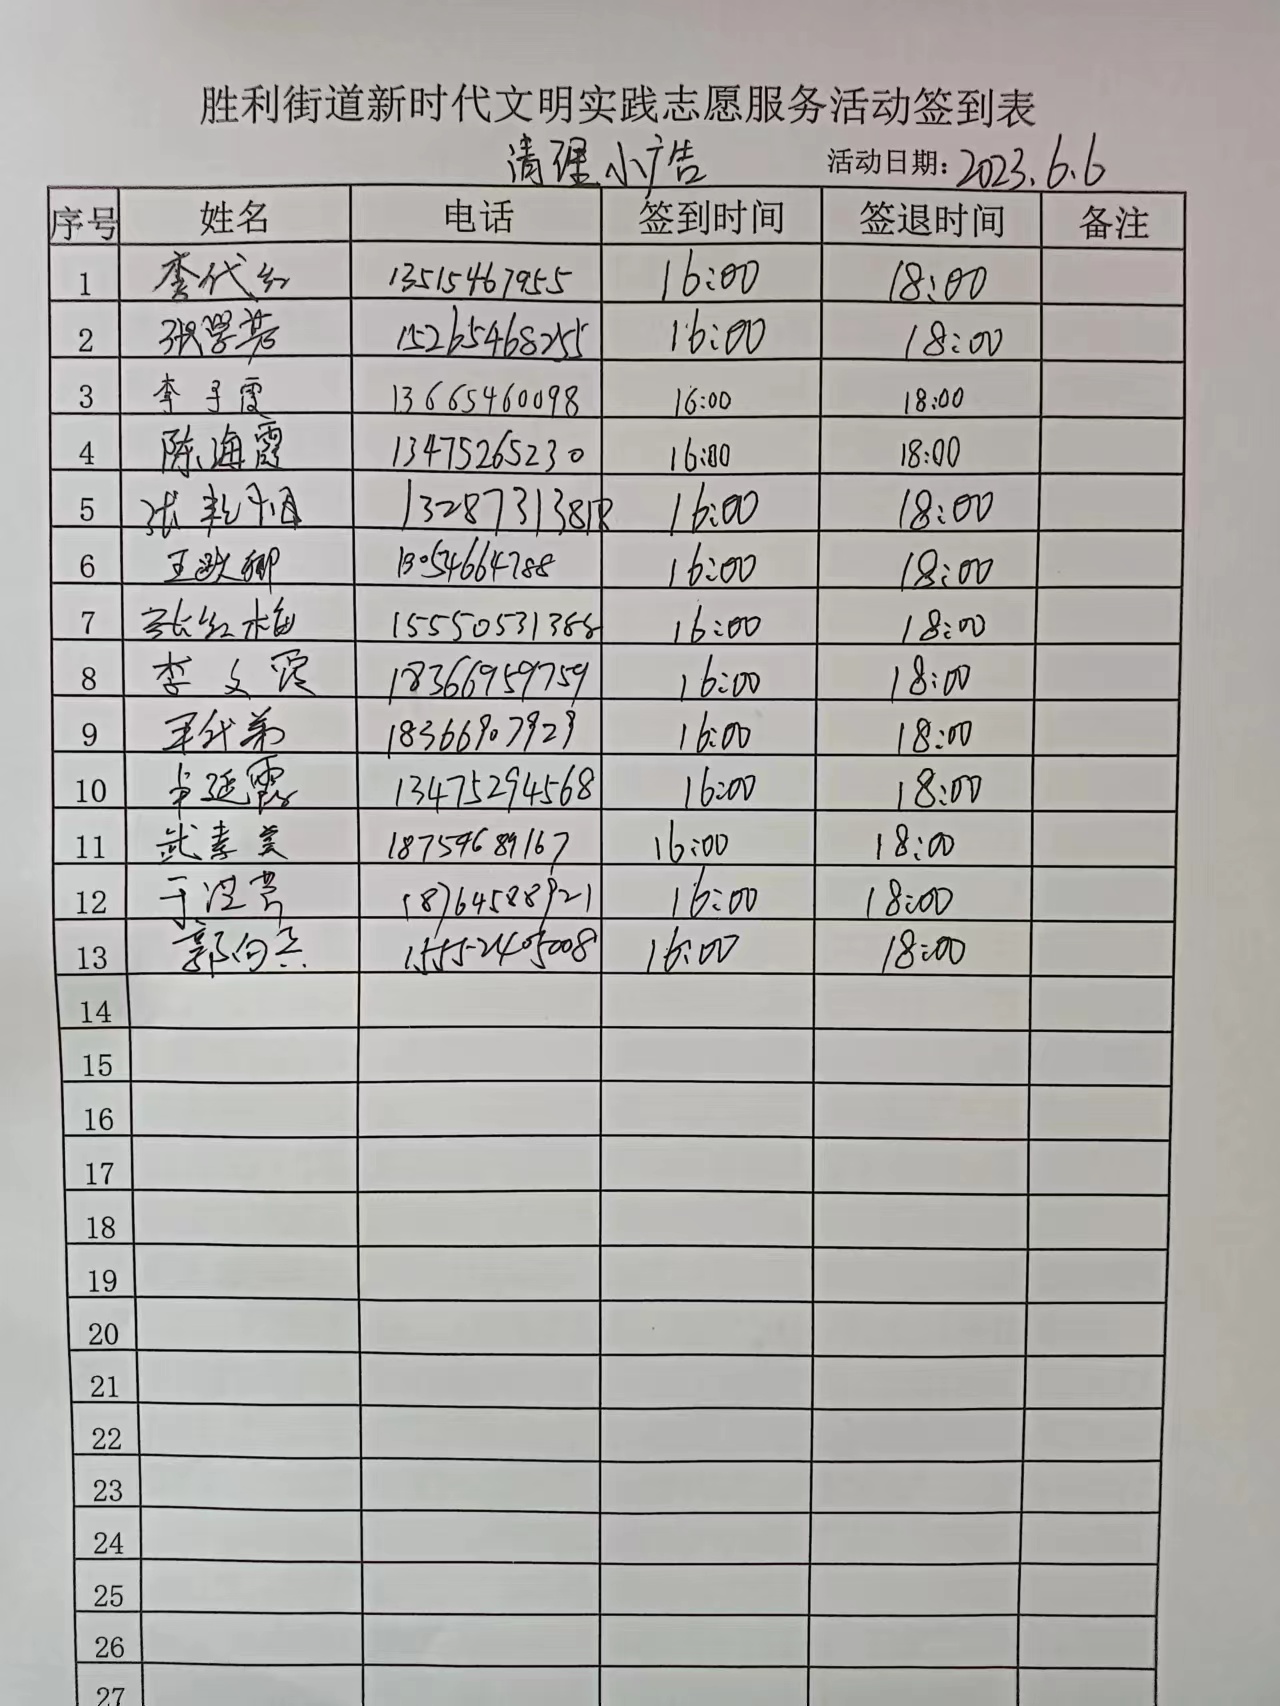 胜利街道新时代文明实践志愿服务活动签到表
清理小广告 活动日期：2023.6.6
序号 姓名 电话 签到时间 签退时间 备注
1 李代红 13515467955 16:00 18:00
2 张学芳 15265468255 16:00 18:00
3 李子霞 13665460098 16:00 18:00
4 陈海霞 13475265230 16:00 18:00
5 张 13287313818 16:00 18:00
6 王 13054664788 16:00 18:00
7 张红梅 15550531388 16:00 18:00
8 李文霞 18366959759 16:00 18:00
9 王代弟 18366907929 16:00 18:00
10 卢延霞 13475294568 16:00 18:00
11 武素美 18754689167 16:00 18:00
12 于洪芳 18764588921 16:00 18:00
13 郭向兵 15552405008 16:00 18:00
14
15
16
17
18
19
20
21
22
23
24
25
26
27